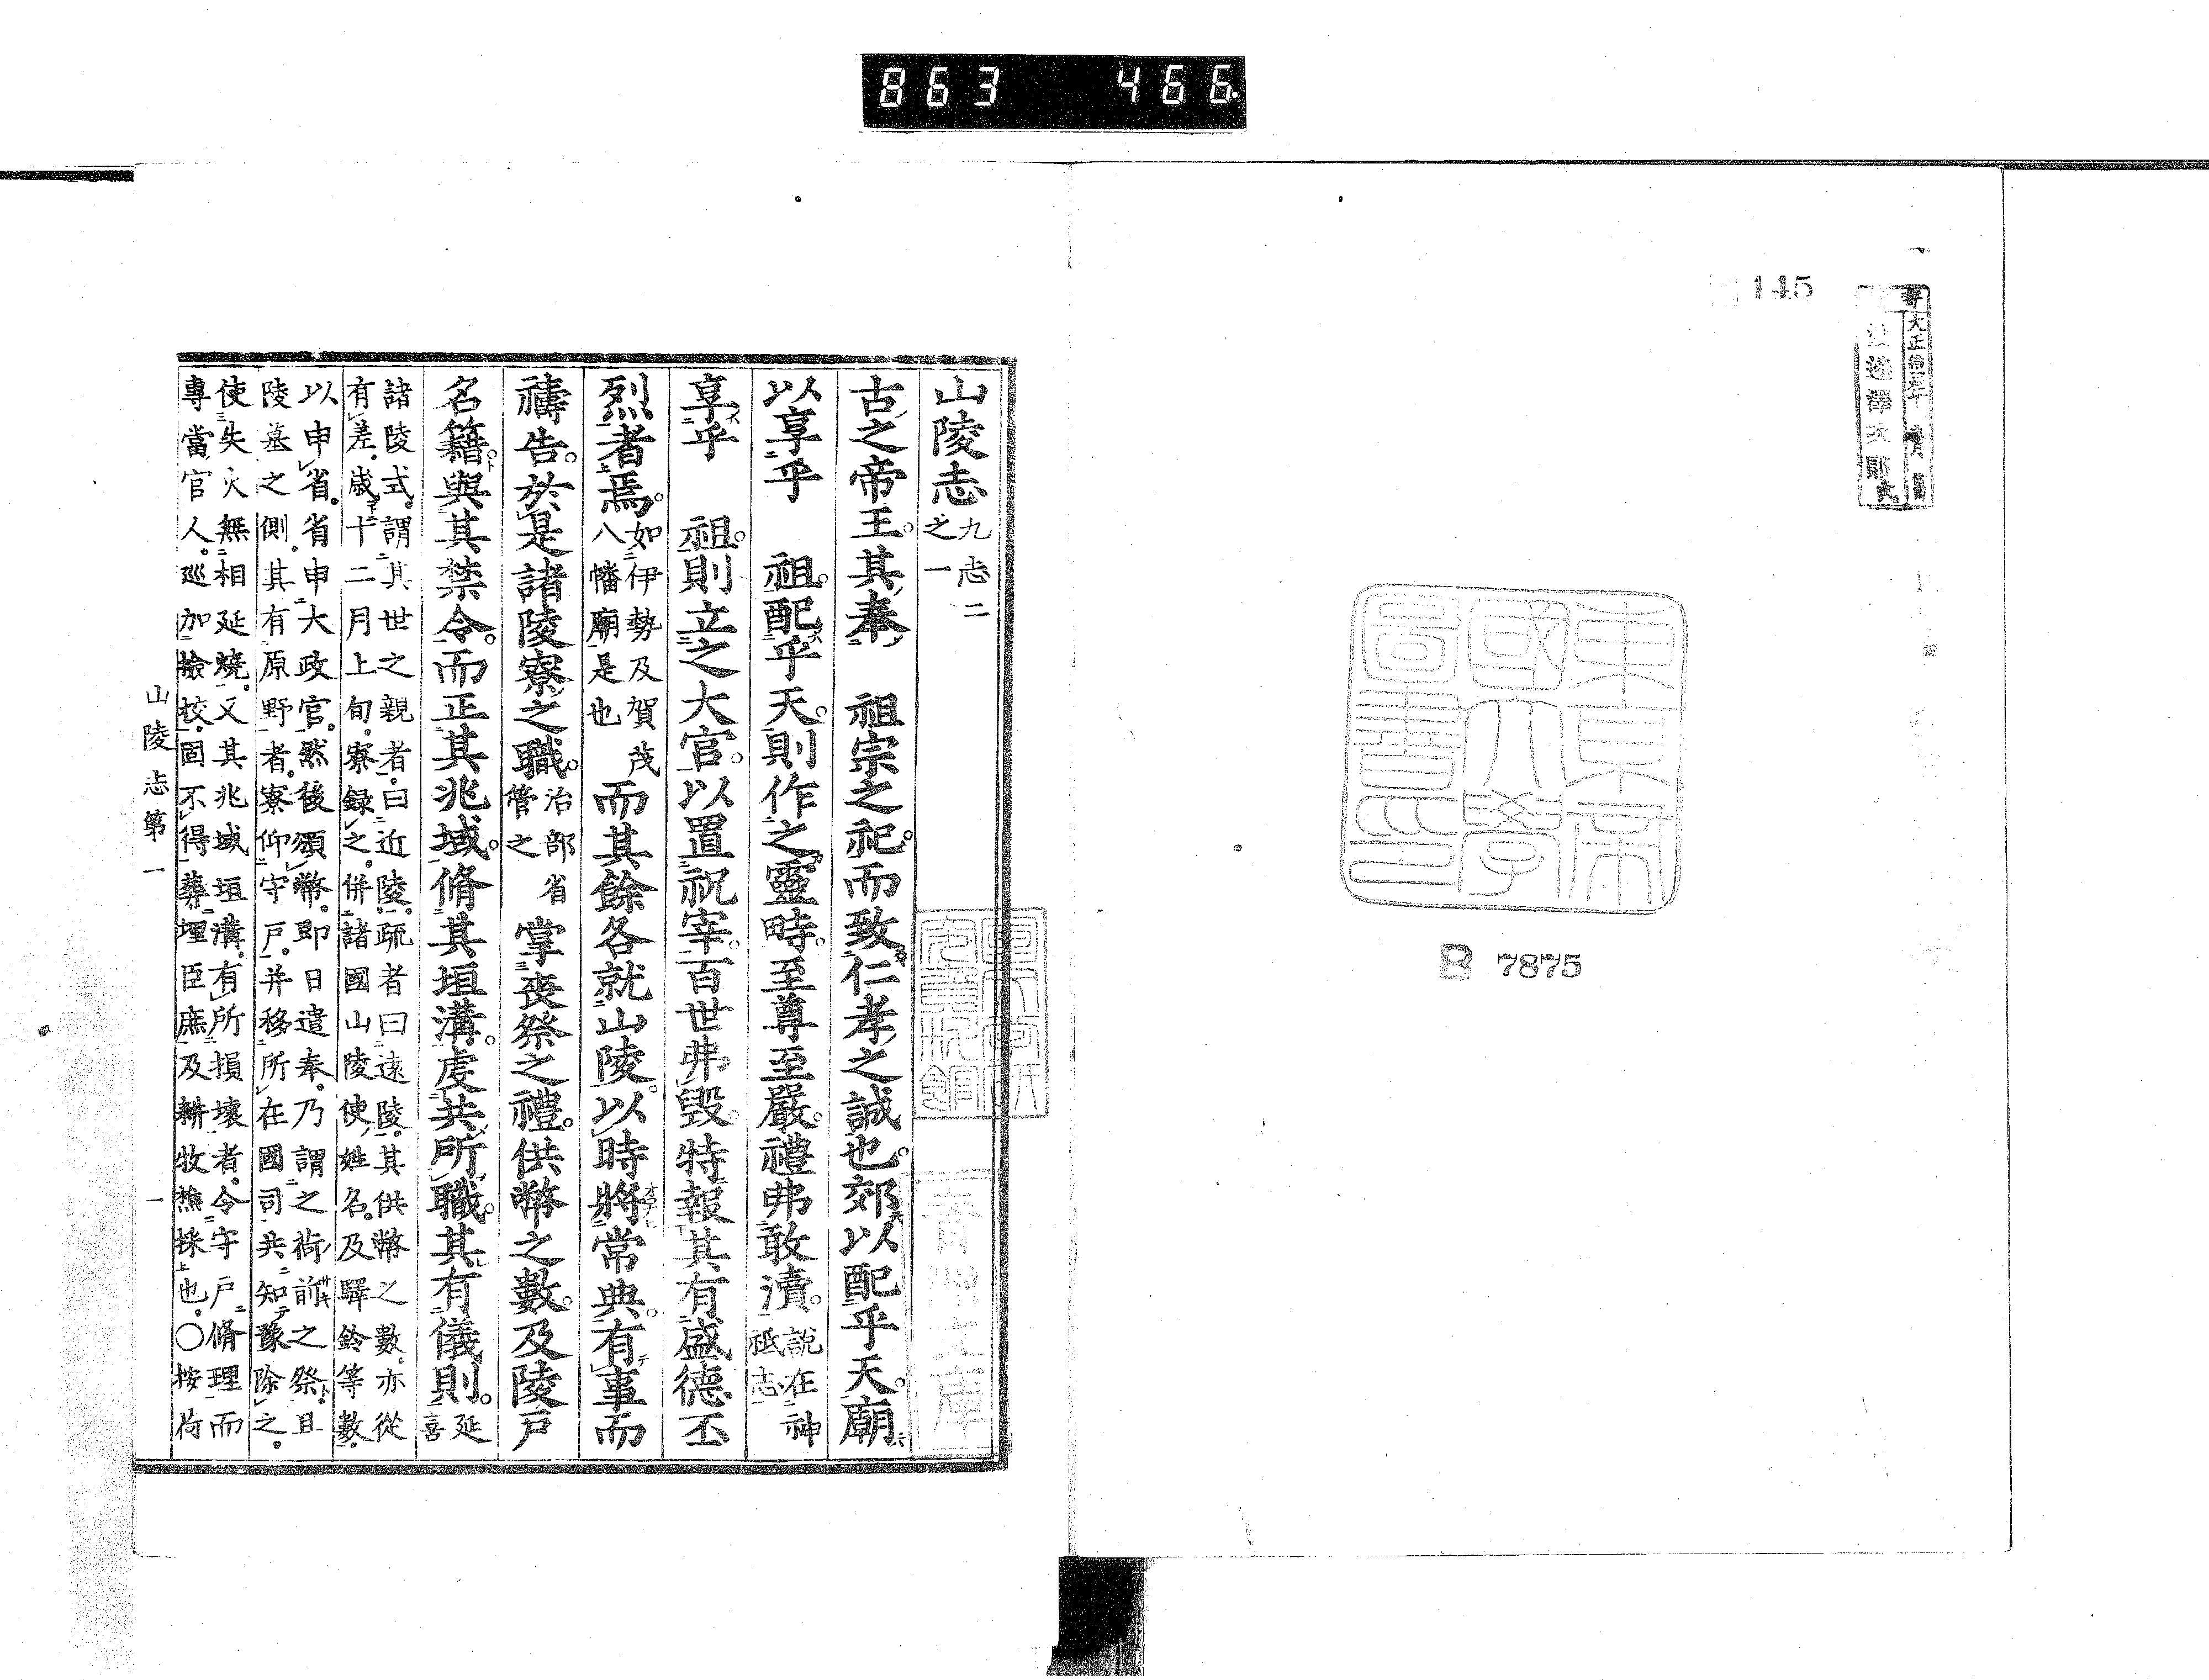 863 466
145
B 7875
東京帝國大學圖書印
山陵志 九志二之一
古之帝王。其奉 祖宗之祀。而致仁孝之誠也。郊以配乎天。廟
以享乎 祖。配乎天。則作之靈畤。至尊至嚴。禮弗敢瀆。說在神祇志
享乎 祖。則立之大官。以置祝宰。百世弗毀。特報其有盛德丕
烈者焉。如伊勢及賀茂八幡廟是也 而其餘各就山陵。以時將常典。有事而
禱告。於是諸陵寮之職。治部省管之 掌喪祭之禮。供幣之數。及陵戶
名籍。與其禁令。而正其兆域。脩其垣溝。虔共所職。其有儀則。延喜
諸陵式。謂其世之親者。曰近陵。疏者曰遠陵。其供幣之數。亦從
有差。歲十二月上旬。寮録之。併諸國山陵使姓名。及驛鈴等數。
以申省。省申大政官。然後頒幣。即日遣奉。乃謂之荷前之祭。且
陵墓之側。其有原野者。寮仰守戶。并移所在國司共知。豫除之。
使失火無相延燒。又其兆域垣溝。有所損壞者。令守戶脩理。而
專當官人。巡加撿挍。固不得葬埋臣庶及耕牧樵採也。〇按荷
山陵志第一
一